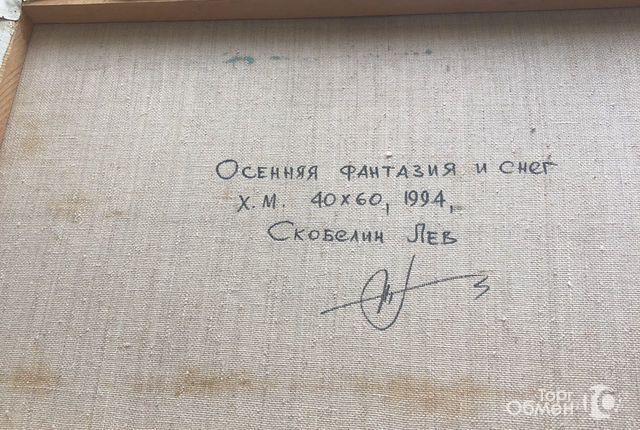 Осенняя фантазия и снег
х.м. 40х60, 1994,
Скобелин Лев
Торг
Обмен